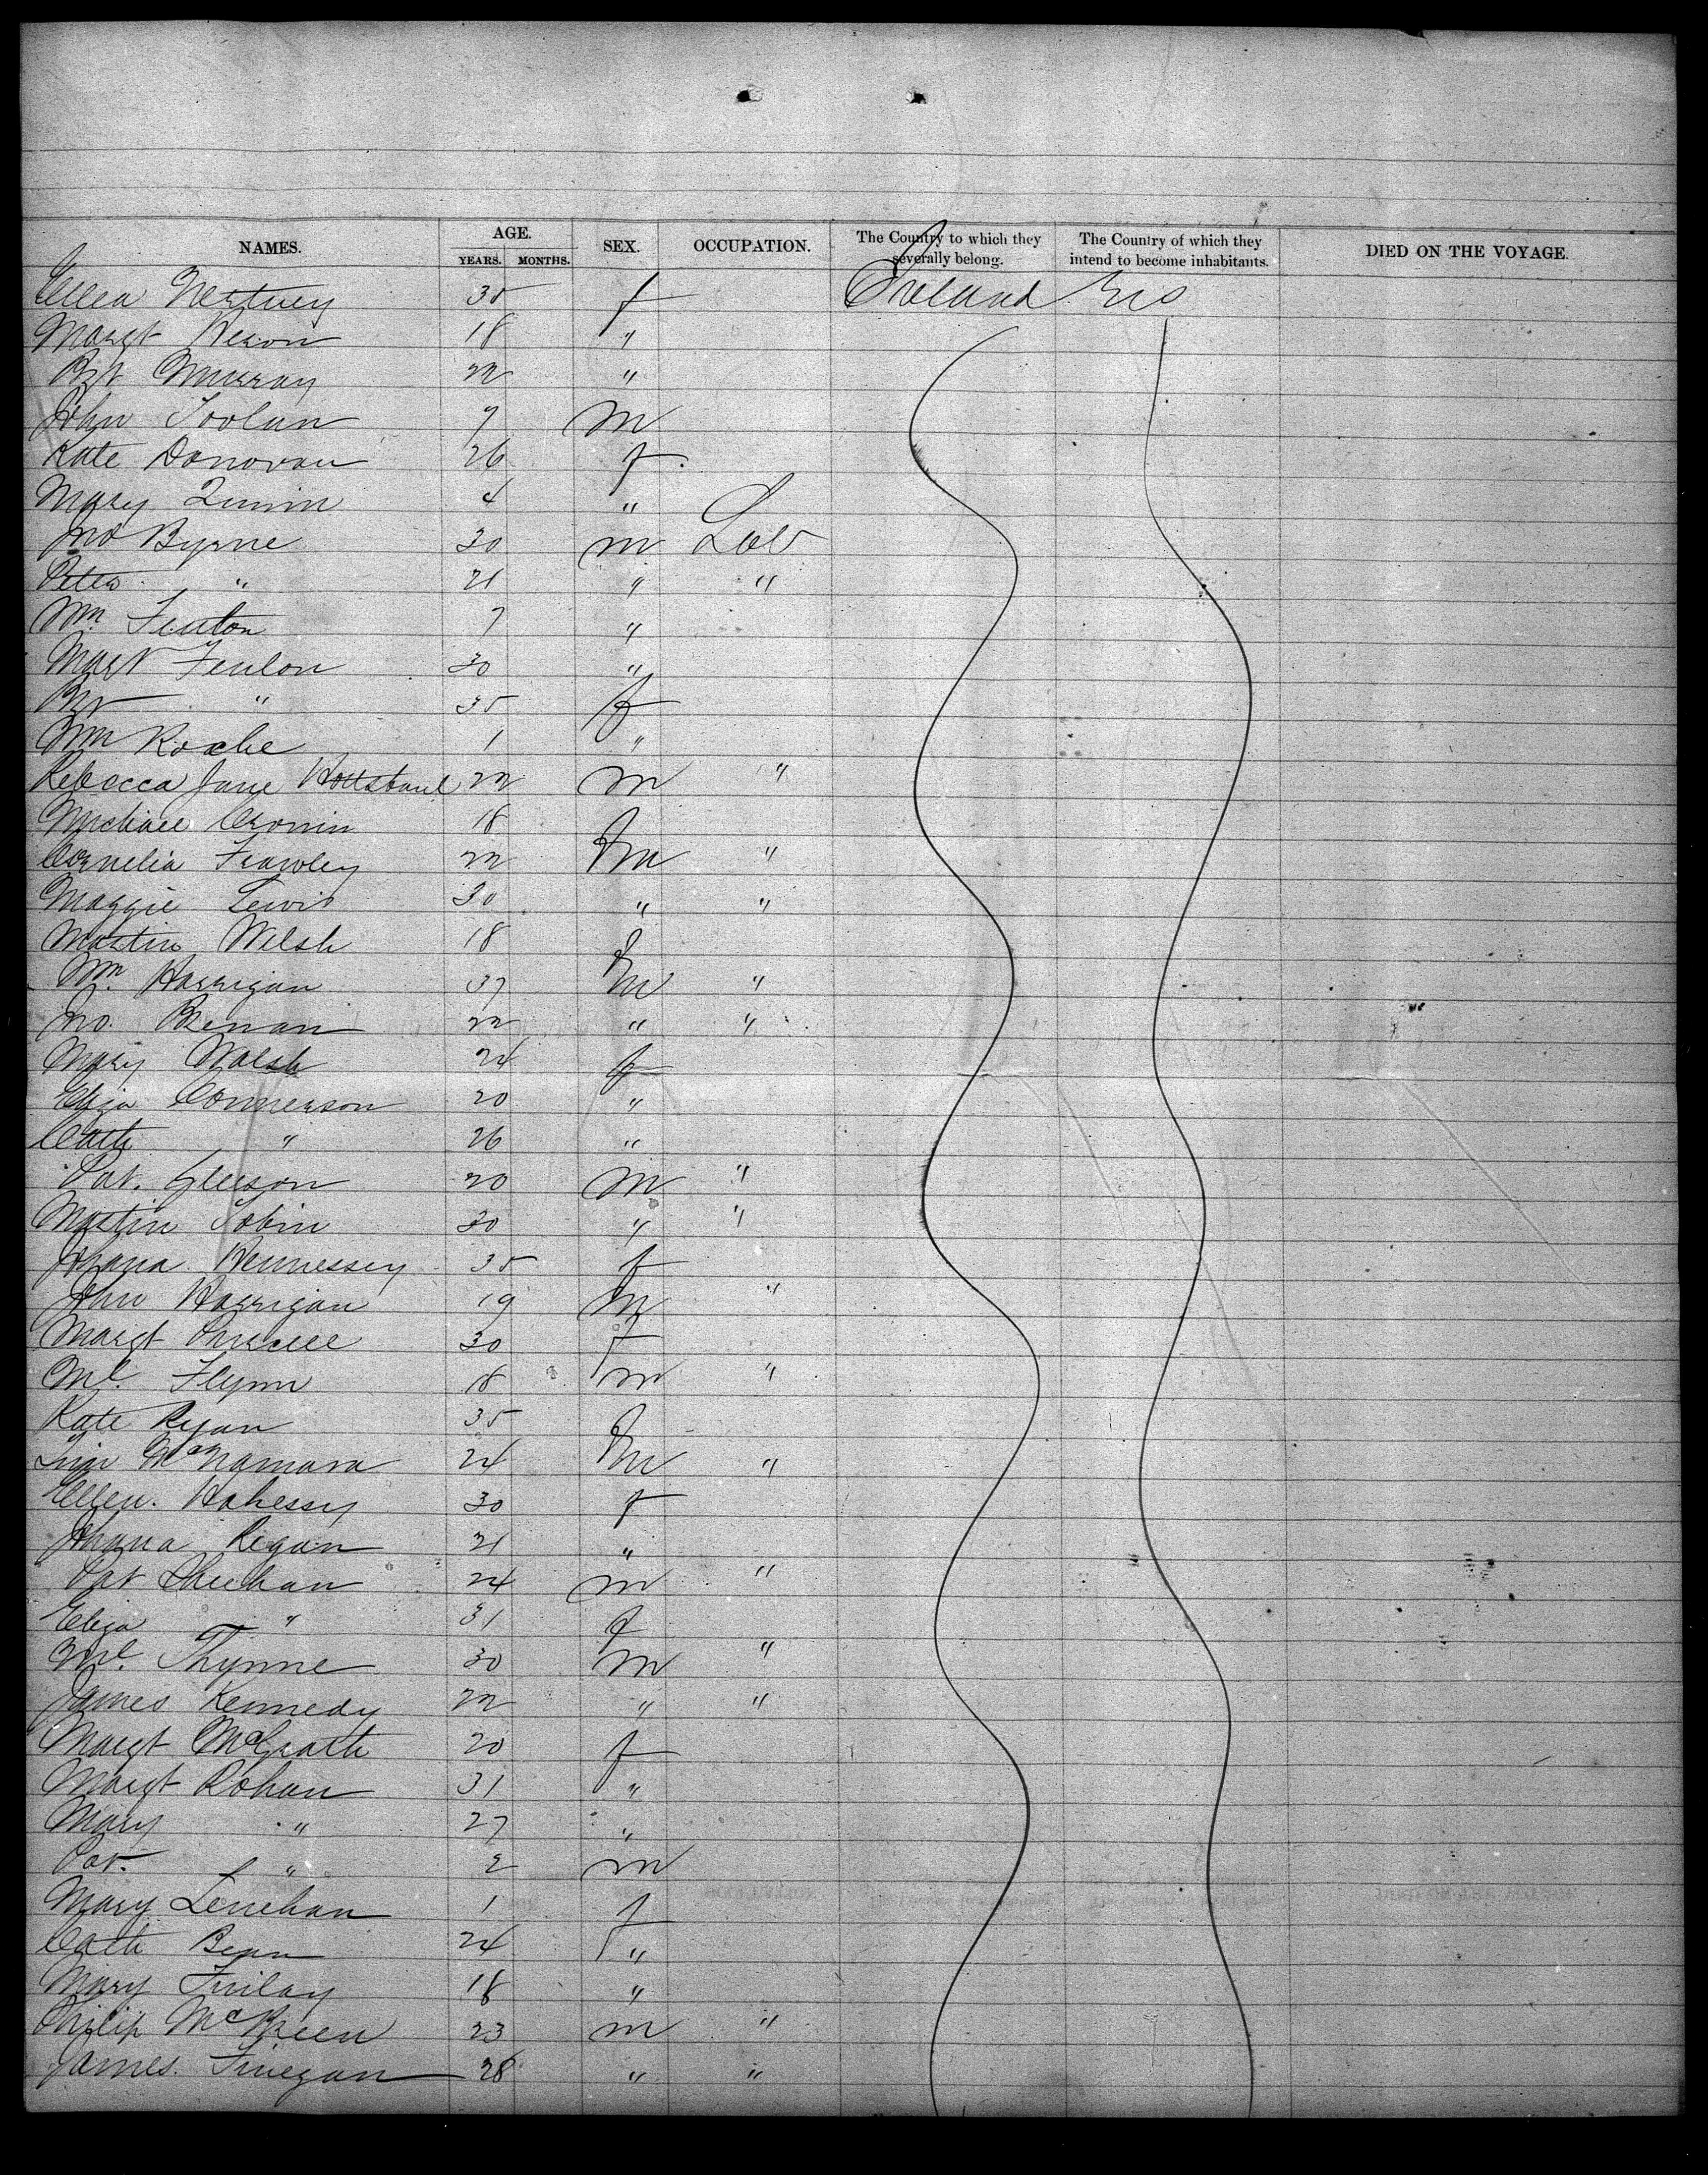 NAMES. AGE. YEARS. MONTHS. SEX. OCCUPATION. The Country to which they severally belong. The Country of which they intend to become inhabitants. DIED ON THE VOYAGE.
Ellen 35 f Ireland
Margt 18 "
Bgt Murray 22 "
John Toolan 7 m
Kate Donovan 26 f
Mary Quinn 4 "
Jno Byrne 30 m Lab
Peter " 21 " "
Wm. Fenton 7 "
Mart Fenlon 30 "
Bgt " 35 f
Wm Roche 1 "
Rebecca Jane 22 m "
Michael Cronin 18
Cornelia Frawley 22 m "
Maggie Lewis 30 " "
Martin Welsh 18 f
Wm. Harrigan 37 m "
Jno. Brenan 22 " "
Mary Walsh 24 f
Eliza Connerson 20 "
Cath " 26 "
Pat. Gleeson 20 m "
Martin Tobin 30 " "
Johana Hennessey 35 f
John Harrigan 19 m "
Margt Purcell 30 f
Ml. Flynn 18 m "
Kate Ryan 35 f
Tim McNamara 24 m "
Ellen. Hahessy 30 f
Johana Regan 21 "
Pat Sheehan 24 m "
Eliza " 31 f
Ml. Thynne 30 m "
James Kennedy 22 " "
Margt McGrath 20 f
Margt Rohan 31 "
Mary " 27 "
Pat. " 2 m
Mary Lenehan 1 f
Cath 24 "
Mary Finlay 18 "
Philip McBreen 23 m "
James. Finegan 28 " "